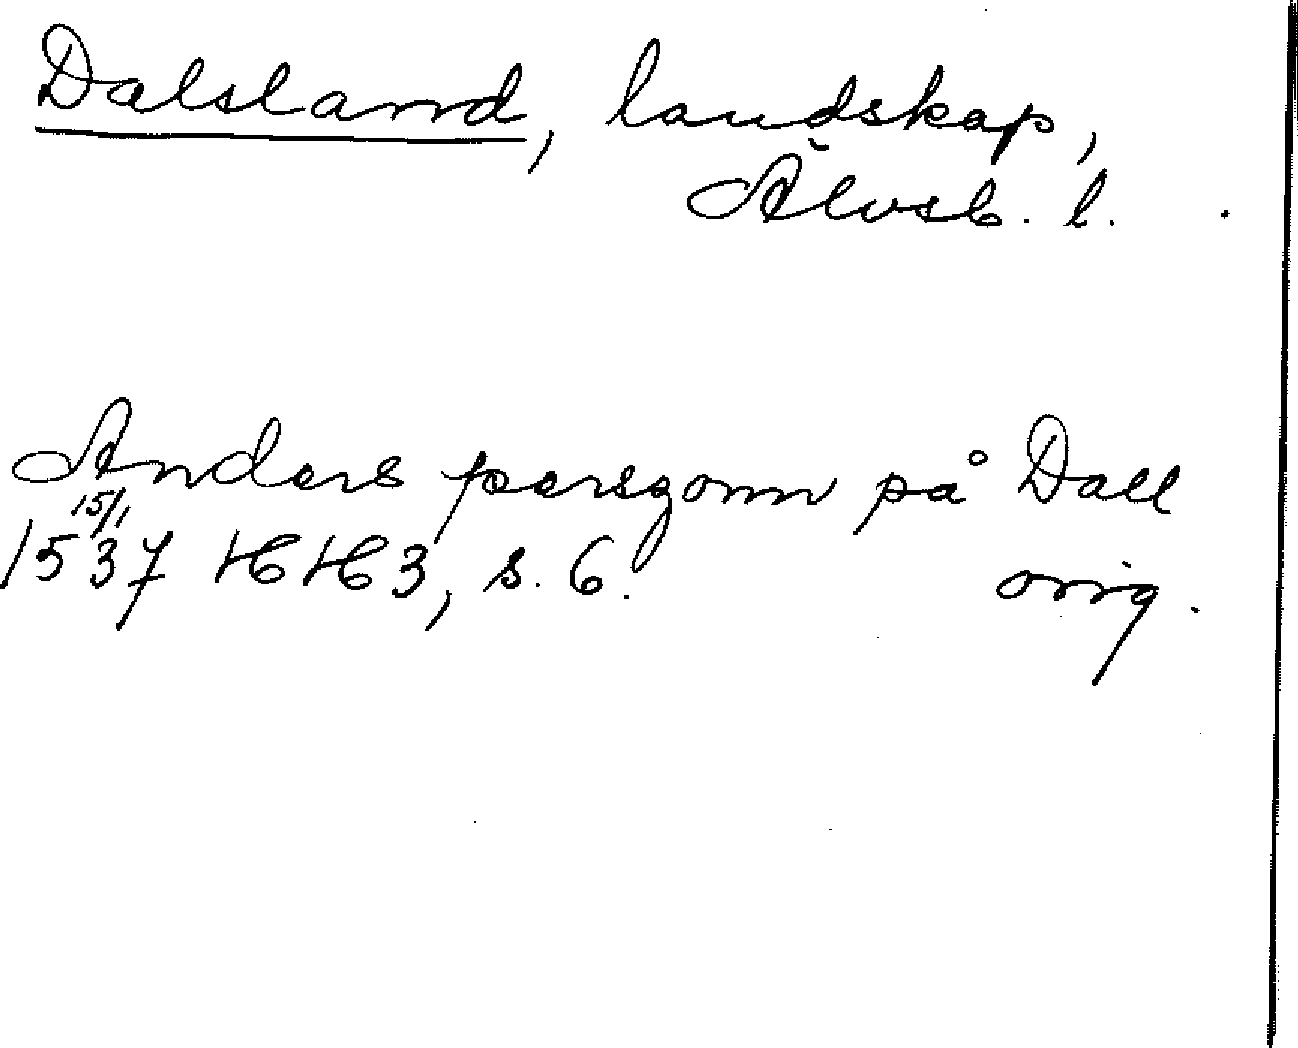 Dalsland, landskap,
Älvsb. l.
Anders pærszonn på Dall
15/1
1537 HH3, s. 6. orig.